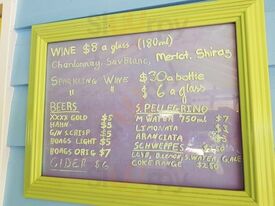 WINE $8 a glass (180ml)
Chardonnay, Sav Blanc, Merlot, Shiraz
SPARKLING WINE $30 a bottle
" " $6 a glass
BEERS
XXXX GOLD $5
HAHN $5
G/N CRISP $5
BOAGS LIGHT $5
BOAGS ORIG $7
CIDER $6
S.PELLEGRINO
M WATER 750ml $7
LIMONATA
ARANCIATA
SCHWEPPES
LLB, D.LEMON, S.WATER, G.ALE
COKE RANGE $2.50